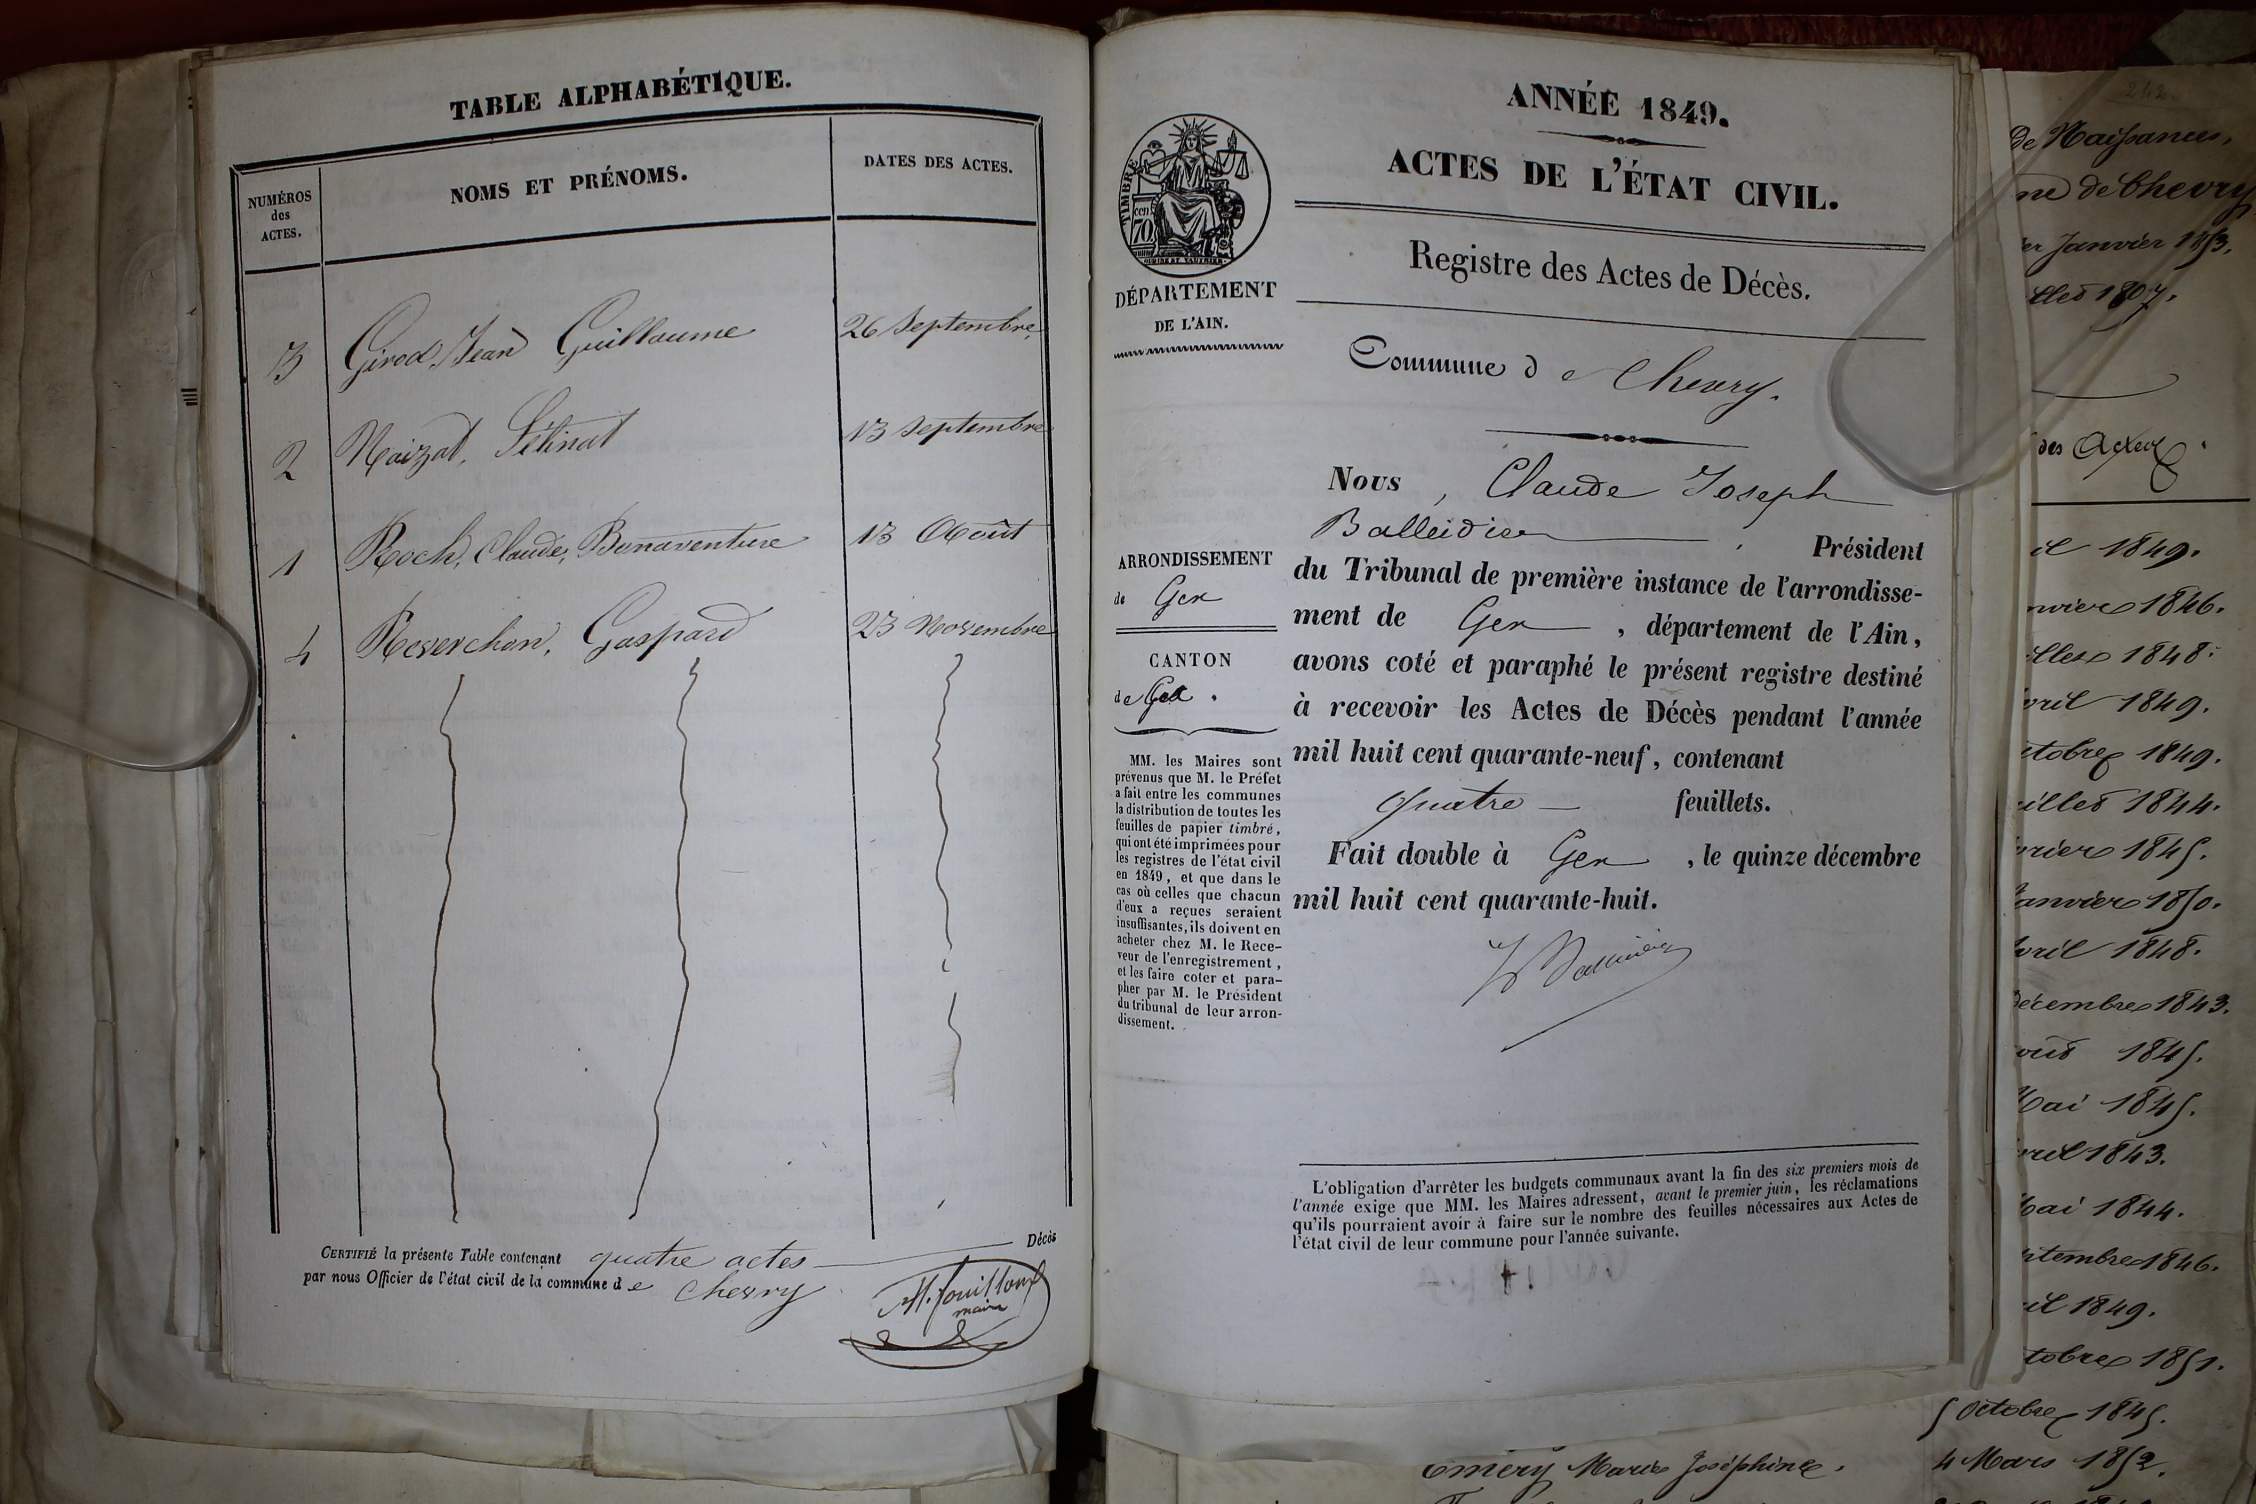 TABLE ALPHABÉTIQUE.
NUMÉROS
des
ACTES.
NOMS ET PRÉNOMS.
DATES DES ACTES.
3 Girod, Jean Guillaume 26 Septembre,
2 Maizat, 13 Septembre
1 Roch, Claude, Bonaventure 13 Août
4 Reverchon, Gaspard 23 Novembre
CERTIFIÉ la présente Table contenant quatre actes Décès
par nous Officier de l'état civil de la commune de Chevry
maire
ANNÉE 1849.
ACTES DE L'ÉTAT CIVIL.
Registre des Actes de Décès.
TIMBRE
70
cen
DÉPARTEMENT
DE L'AIN.
Commune de Chevry.
ARRONDISSEMENT
de Gex
CANTON
de Gex.
MM. les Maires sont
prévenus que M. le Préfet
a fait entre les communes
la distribution de toutes les
feuilles de papier timbré,
qui ont été imprimées pour
les registres de l'état civil
en 1849, et que dans le
cas où celles que chacun
d'eux a reçues seraient
insuffisantes, ils doivent en
acheter chez M. le Rece-
veur de l'enregistrement,
et les faire coter et para-
pher par M. le Président
du tribunal de leur arron-
dissement.
Nous, Claude Joseph
Président
du Tribunal de première instance de l'arrondisse-
ment de Gex, département de l'Ain,
avons coté et paraphé le présent registre destiné
à recevoir les Actes de Décès pendant l'année
mil huit cent quarante-neuf, contenant
quatre feuillets.
Fait double à Gex, le quinze décembre
mil huit cent quarante-huit.
L'obligation d'arrêter les budgets communaux avant la fin des six premiers mois de
l'année exige que MM. les Maires adressent, avant le premier juin, les réclamations
qu'ils pourraient avoir à faire sur le nombre des feuilles nécessaires aux Actes de
l'état civil de leur commune pour l'année suivante.
242
de Naissances,
ne de Chevry
er Janvier 1853,
1807.
des Actes.
il 1849.
nvier 1846.
illet 1848.
vril 1849.
ctobre 1849.
uillet 1844.
vrier 1845.
Janvier 1850.
vril 1848.
Décembre 1843.
oût 1845.
Mai 1845.
vril 1843.
Mai 1844.
ptembre 1846.
il 1849.
tobre 1851.
5 Octobre 1845.
Emery Marie Joséphine. 4 Mars 1852.